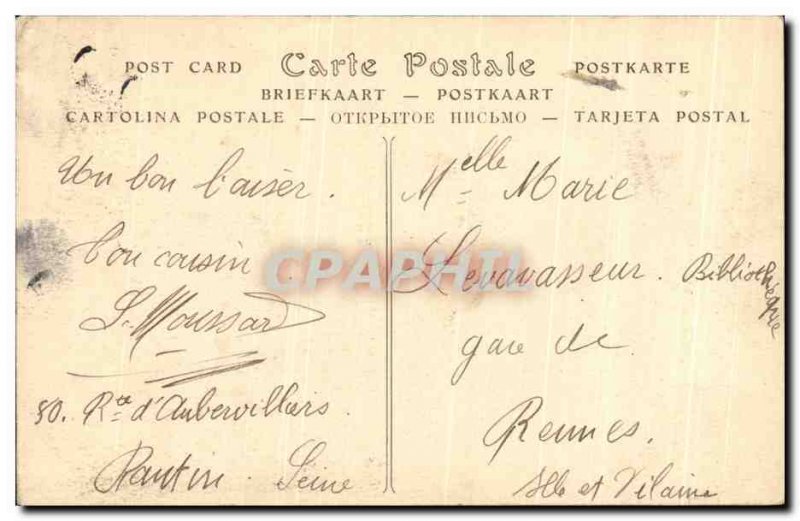 POST CARD Carte Postale POSTKARTE
BRIEFKAART — POSTKAART
CARTOLINA POSTALE — ОТКРЫТОЕ ПИСЬМО — TARJETA POSTAL
Un bon baiser.
bon cousin
L. Moussard
50. Rte d'Aubervilliers
Pantin. Seine
Melle Marie
Levavasseur. Bibliothèque
gare de
Rennes.
Ille et Vilaine
CPAPHIL